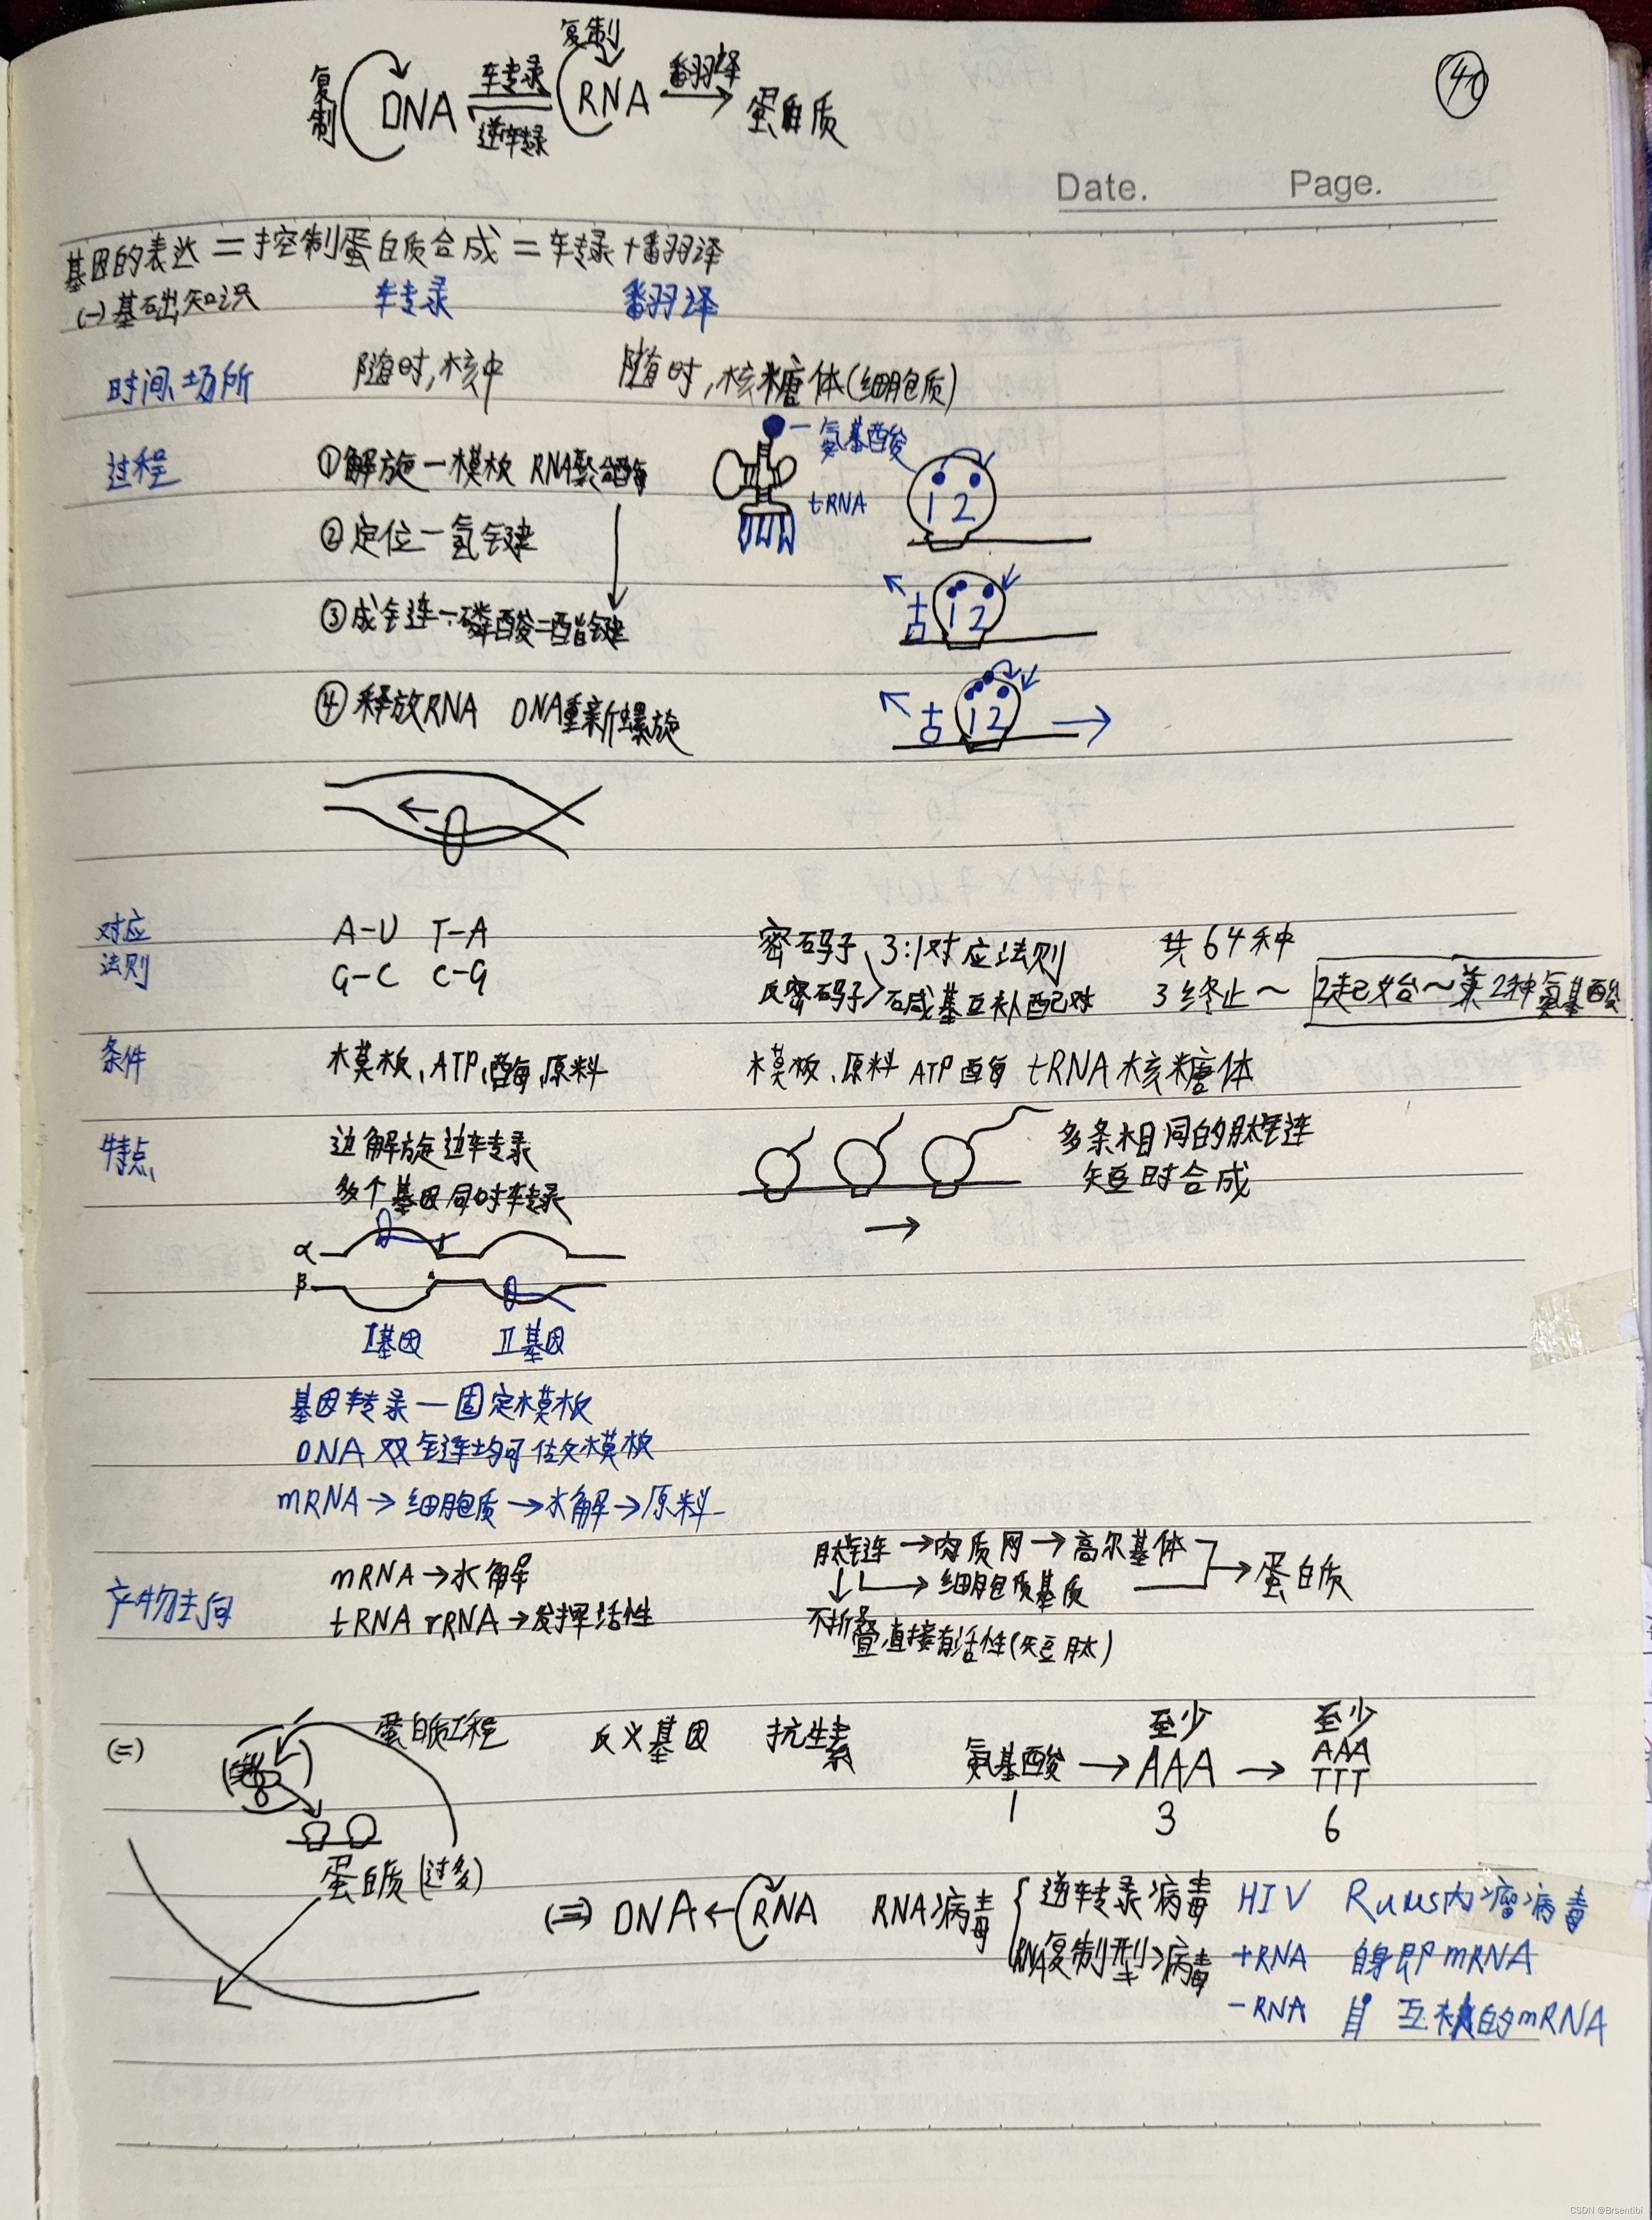 复制 DNA 转录 逆转录 复制 RNA 翻译 蛋白质
40
Date. Page.
基因的表达=控制蛋白质合成=转录+翻译
(一)基础知识 转录 翻译
时间、场所 随时,核中 随时,核糖体(细胞质)
过程 ①解旋—模板 RNA聚合酶 氨基酸
tRNA 1 2
②定位—氢键
③成链—磷酸二酯键 占 1 2
④释放RNA DNA重新螺旋 占 1 2
对应法则 A-U T-A 密码子、3:1对应法则 共64种
G-C C-G 反密码子 碱基互补配对 3终止~ 2起始~第2种氨基酸
条件 模板、ATP、酶、原料 模板、原料 ATP 酶 tRNA 核糖体
特点 边解旋边转录 多条相同的肽链
多个基因同时转录 短时合成
α
β
I基因 II基因
基因转录—固定模板
DNA双链均可作为模板
mRNA→细胞质→水解→原料
产物去向 mRNA→水解 肽链→内质网→高尔基体→蛋白质
tRNA rRNA→发挥活性 →细胞质基质
不折叠,直接有活性(短肽)
(二) 蛋白质工程 反义基因 抗生素 氨基酸→AAA→AAA
至少 至少
TTT
1 3 6
蛋白质(过多)
(三) DNA←RNA RNA病毒 逆转录病毒 HIV 肉瘤病毒
RNA复制型病毒 +RNA 自身即mRNA
-RNA 互补的mRNA
CSDN @Brsentibi